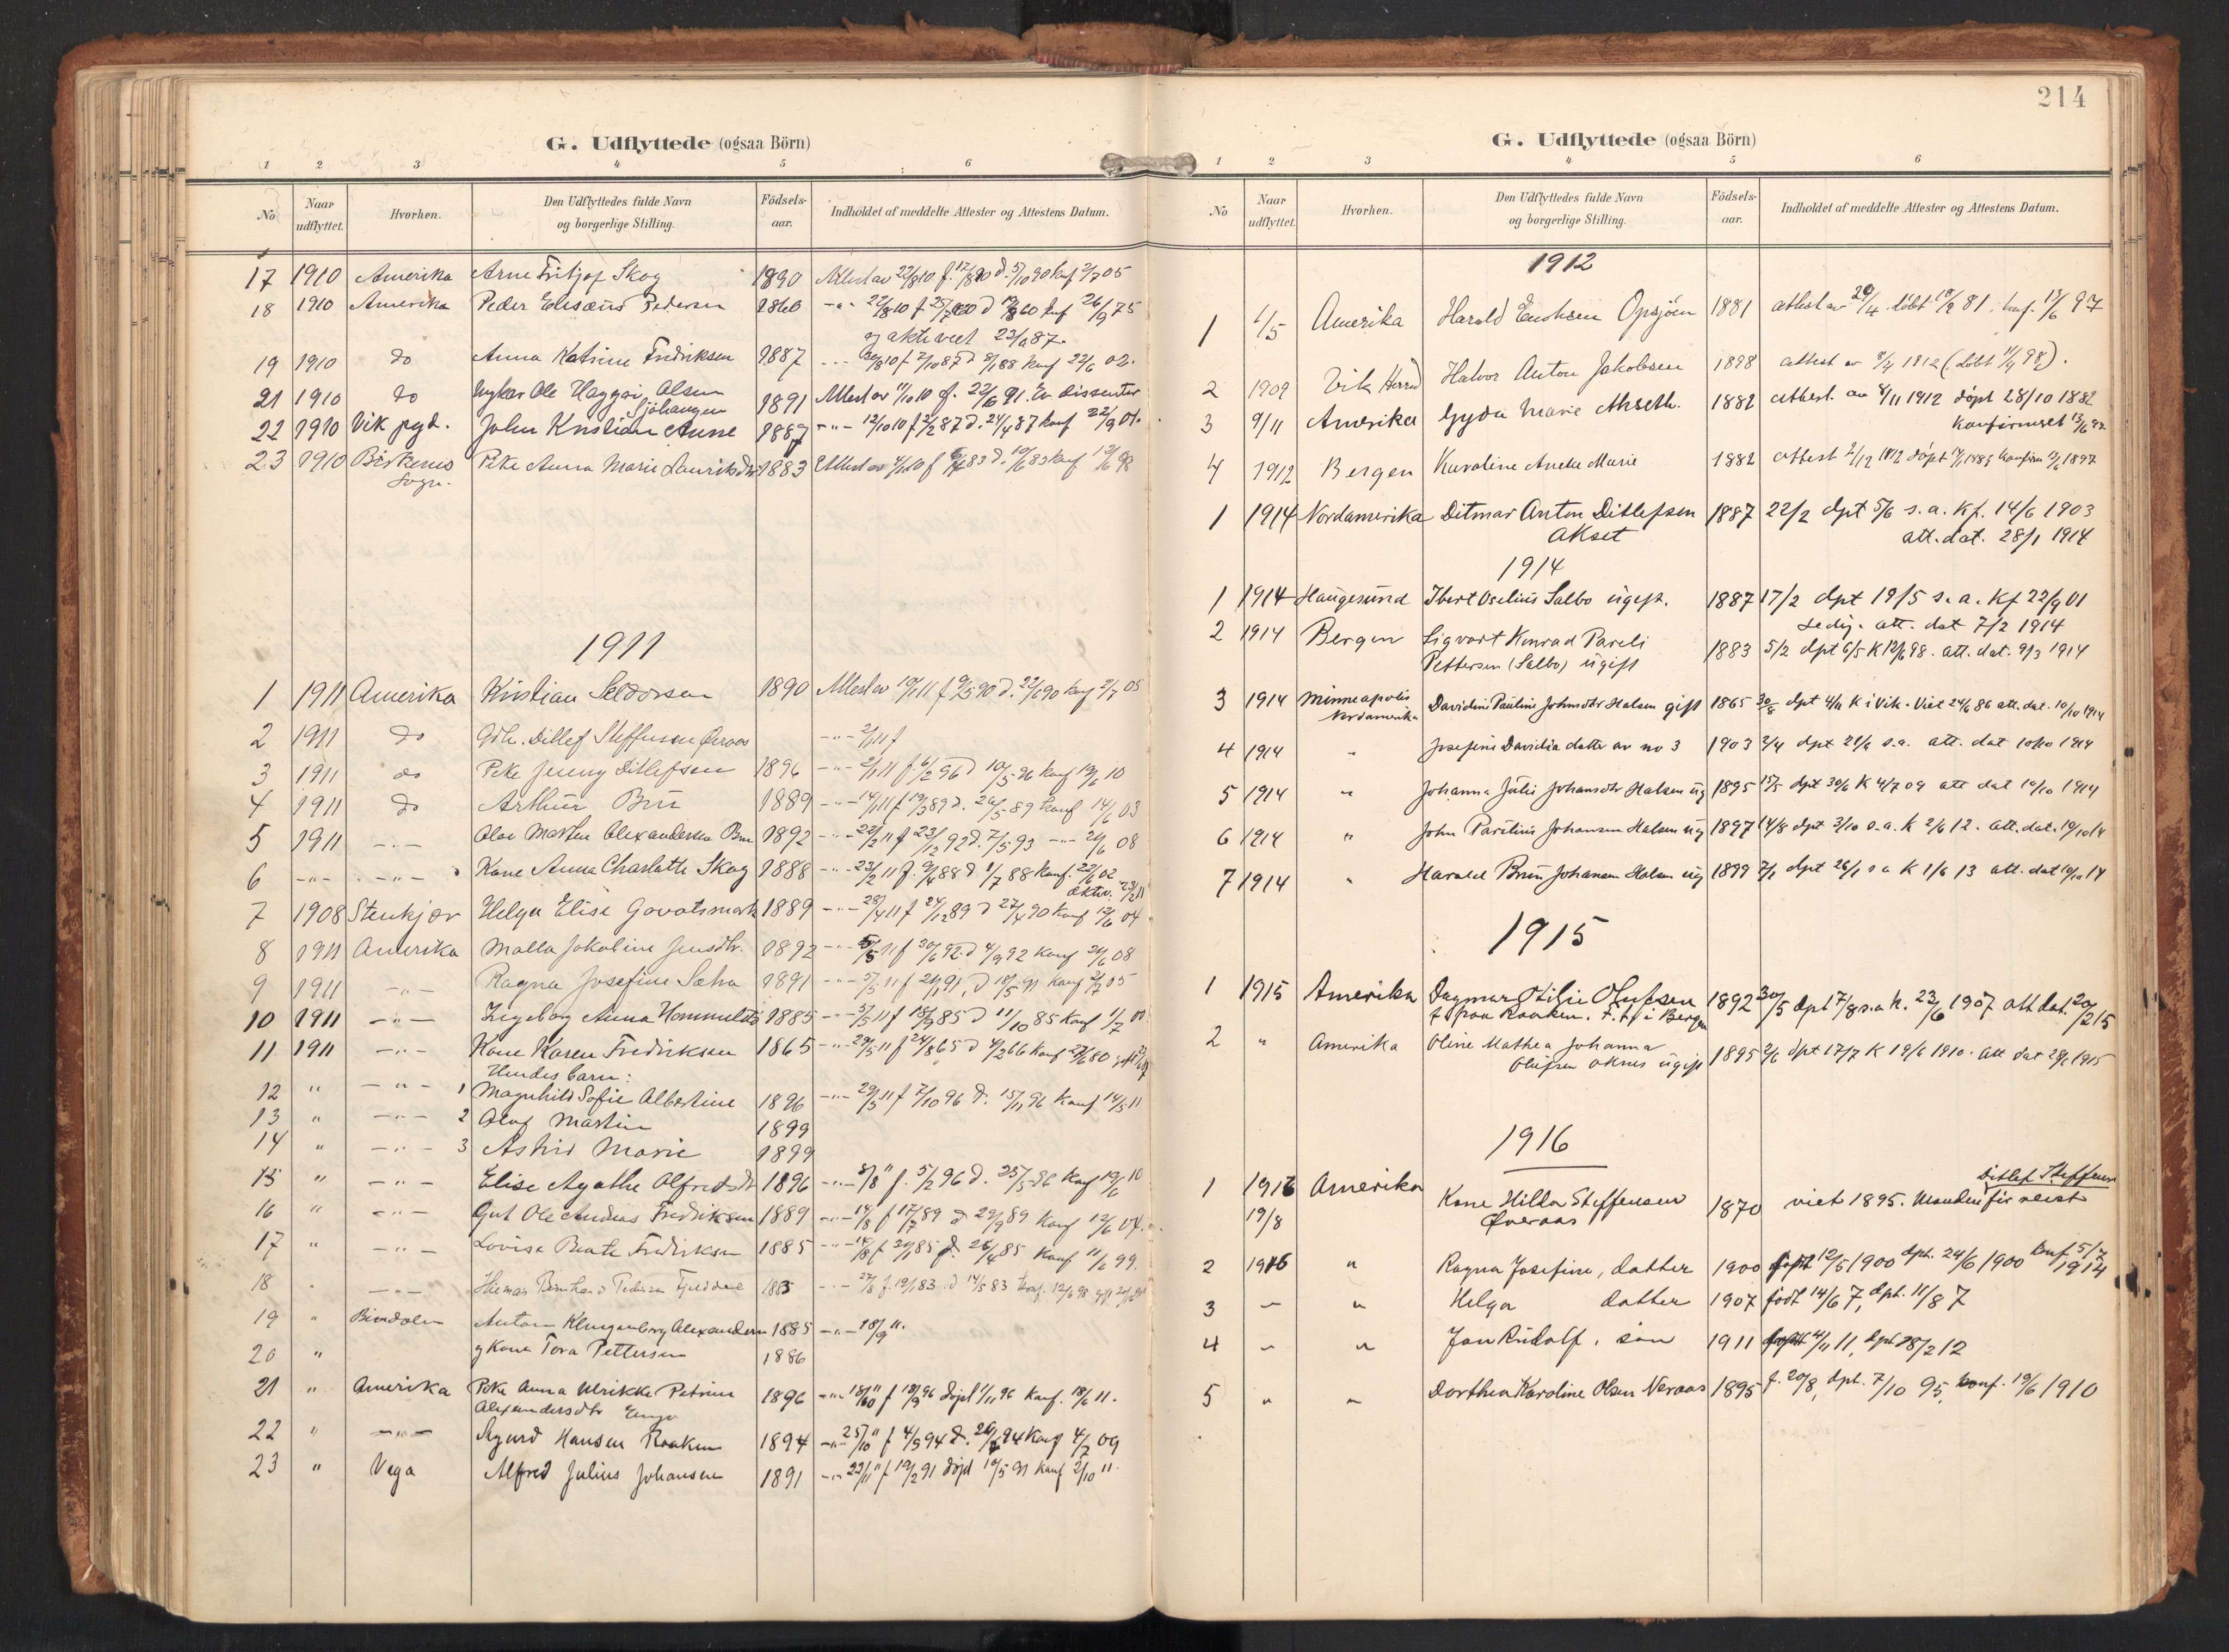 G. Udflyttede (ogsaa Börn)
1 2 3 4 5 6
No Naar udflyttet. Hvorhen. Den Udflyttedes fulde Navn og borgerlige Stilling. Födsels-aar. Indholdet af meddelte Attester og Attestens Datum.
17 1910 Amerika Arne Fritjof Skog 1890 Attest av 22/8 10 f. 12/8 90 d. 5/10 90 Konf 2/7 05
18 1910 Amerika Peder Elisæus Pedersen 1860
og aktivert
19 1910 do Anna Katrine Fredriksen 1887 f 2/10 87 d 8/1 88 Konf 22/6 02.
21 1910 do Ungkar Ole Haggai Olsen
Sjøhaugen 1891 Attest av 11/10 10 f. 22/6 91. Er dissenter
22 1910 Vik pgd. John Kristian Aune 1887 -"- 12/10 10 f 2/2 87 d. 24/4 87 konf 22/9 01.
23 1910 Birkenes Pike Anna Marie Lauriksdtr 1883
Sogn.
1911
1 1911 Amerika Kristian 1890 Attest av
2 1911 do Gdb. Ditlef Steffensen Øveraas
3 1911 do Pike Jenny Ditlefsen 1896 Konf 19/6 10
4 1911 do Arthur Bru 1889 konf 14/6 03
5 1911 -"- Olav Marten Alexandersen Bru 1892 -"- 22/2 11 f 23/12 92 d. 7/5 93 -"- 21/6 08
6 -"- -"- Kone Anna Charlotte Skog 1888 -"- 23/2 11 f. 9/4 88 d 1/7 88 Konf. 22/6 02
aktiv. 23/2 11
7 1908 Stenkjær Helga Elise Govatsmark 1889 -"- 28/4 11 f 24/12 89 d 27/4 90 Konf 12/6 04
8 1911 Amerika Malla Jakoline Jensdtr. 1892 -"- 5/5 11 f 30/6 92 d 4/9 92 Konf 21/6 08
9 1911 -"- Ragna Josefine 1891
10 1911 -"- Ingeborg Anna 1885 -"- 5/5 11 f 18/9 85 d 11/10 85 Konf 1/7 00
11 1911 -"- Kone Karen Fredriksen 1865 -"- 29/5 11 f 24/8 65 d 4/2 66 Konf 27/6 80
Hendes barn:
12 " -"- 1 Magnhild Sofie Albertine 1896 -"- 29/5 11 f 7/10 96 d. 15/11 96 Konf 14/5 11
13 " -"- 2 Olaf Martin 1899
14 " -"- 3 Astrid Marie 1899
15 " -"- Elise Agathe Alfredsdtr 1896 Konf 19/6 10
16 " -"- Gut Ole Andreas Fredriksen 1889 Konf 12/6 04.
17 " -"- Lovise Beate Fredriksen 1885 Konf 11/6 99.
18 " -"- Hilmar Bernhard Pedersen 1883
19 " Bindalen Anton Klingenberg Alexandersen 1885 -"- 18/9 11.
20 " og Kona Tora Pettersen 1886
21 " Amerika Pike Anna Ulrikke Petrine 1896 döpt 1/11 96 Konf. 18/6 11.
Alexandersdtr
22 " -"- Sigurd Hansen Raaken 1894 Konf 4/7 09
23 " Vega Alfred Julius Johansen 1891 -"- 22/11 " f 19/2 91 döpt 19/5 91 Konf 2/10 11.
214
G. Udflyttede (ogsaa Börn)
1 2 3 4 5 6
No Naar udflyttet. Hvorhen. Den Udflyttedes fulde Navn og borgerlige Stilling. Födsels-aar. Indholdet af meddelte Attester og Attestens Datum.
1912
1 1/5 Amerika Harald Enoksen Opsjøen 1881 attest av 29/4 döbt 18/9 81. konf. 13/6 97
2 1909 Vik Herred Halvor Anton Jakobsen 1898 attest av 8/4 1912 (döbt 11/4 98).
3 9/11 Amerika Gyda Marie Akseth. 1882 attest. av 4/11 1912 döpt 28/10 1882
konfirmeret 13/6 97
4 1912 Bergen Karoline Anette Marie 1882 attest 2/12 1912
1 1914 Nordamerika Ditmar Anton Ditlefsen 1887 22/2 dpt 5/6 s. a. Kf. 14/6 1903
Akset att. dat. 28/1 1914
1914
1 1914 Haugesund Ibert Oselius Salbo ugift. 1887 17/2 dpt 19/5 s. a. Kf 22/9 01
ledig. att. dat 7/2 1914
2 1914 Bergen Sigvart Konrad Pareli
Pettersen (Salbo) ugift 1883 5/2 dpt 6/5 K 12/6 98. att. dat. 9/3 1914
3 1914 Minneapolis
Nordamerika Davidine Pauline Johnsdtr Halsen gift 1865 30/8 dpt 4/11 K i Vik. Viet 24/6 86 att. dat. 10/10 1914
4 1914 " Josefine Davidia datter av no 3 1903 2/4 dpt 21/6 s.a. att. dat 10/10 1914
5 1914 " Johanna Julie Johansdtr Halsen ug 1895 15/5 dpt 30/6 K 4/7 09 att dat 10/10 1914
6 1914 " John Parilius Johansen Halsen ug 1897 14/8 dpt 3/10 s. a. K 2/6 12. att. dat. 10/10 14
7 1914 " Harald Brun Johansen Halsen ug 1899 7/1 dpt 26/1 s a K 1/6 13 att. dat 10/10 14
1915
1 1915 Amerika Dagmar Otilie Olufsen 1892 30/5 dpt 7/8 s.a. K. 23/6 1907 att dat. 20/2 15
f. paa Raaken. F.t. i Bergen
2 " Amerika Oline Mathea Johanna
Olufsen Aknes ugift 1895 2/6 dpt 17/7 K 19/6 1910. att dat 29/6 1915
1916
1 1916 Amerika Kone Hilda Steffensen 1870 viet 1895. Manden Ditlef Steffensen før reist
19/8 Øveraas
2 1916 " Ragna Josefine, datter 1900 født 12/5 1900 dpt. 24/6 1900 konf 5/7 1914
3 " " Helga datter 1907 født 14/6 7, dpt. 11/8 7
4 " " Jan Rudolf. søn 1911 4/11 11, dpt 18/2 12
5 " " Dorthea Karoline Olsen Neraas 1895 f. 20/8, dpt. 7/10 95, konf. 19/6 1910